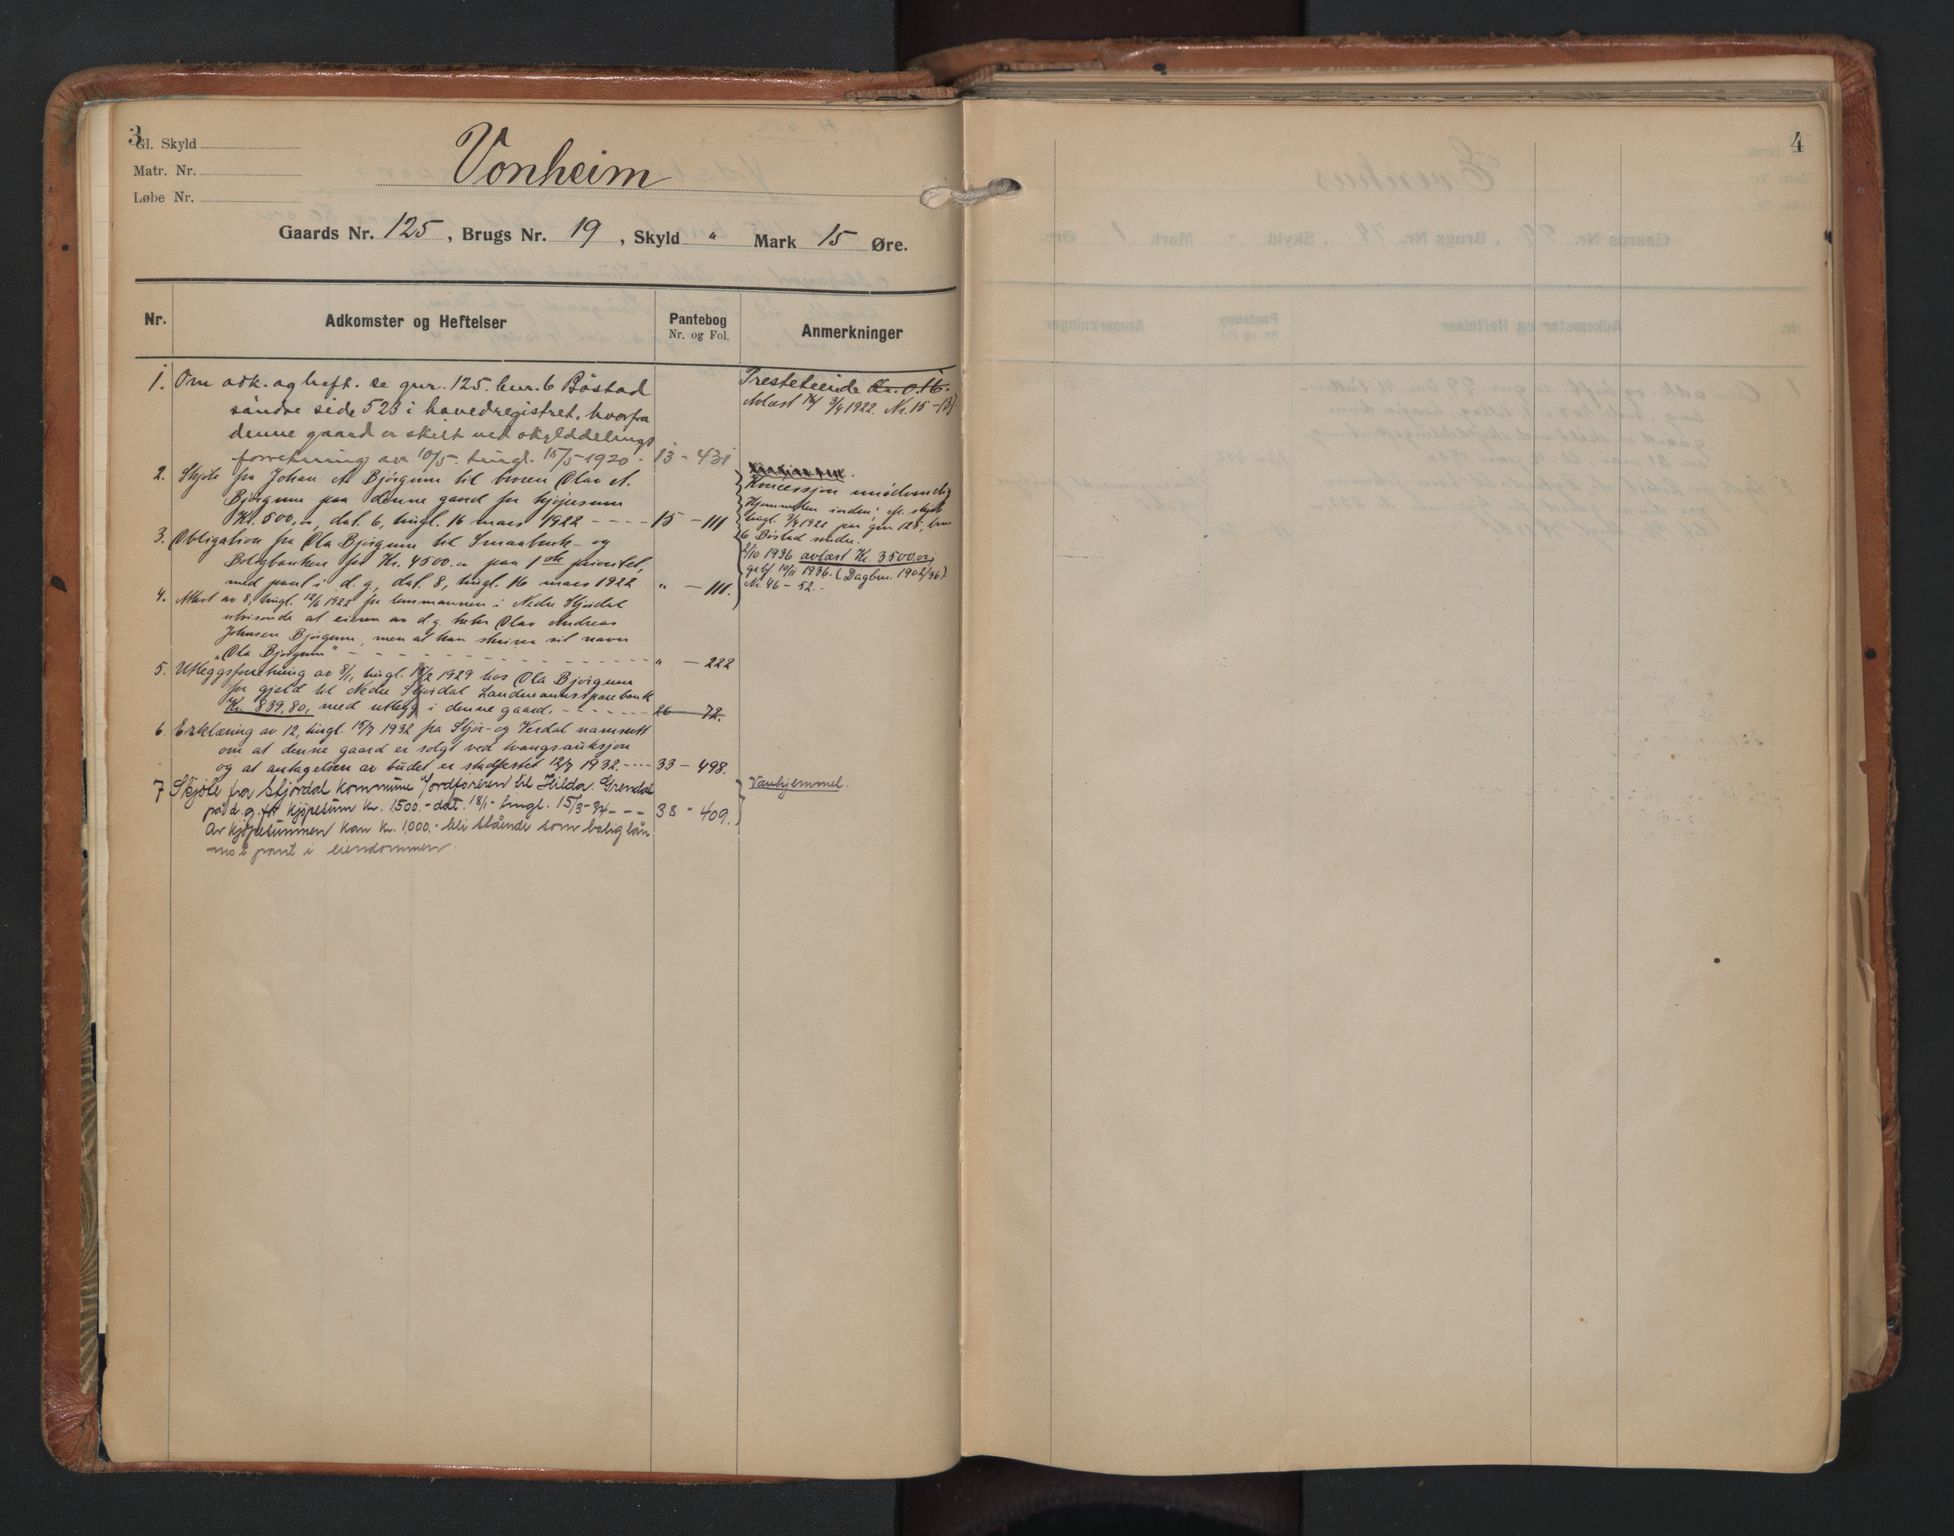 3
Gl. Skyld
Matr. Nr.
Løbe Nr.
Vonheim
Gaards Nr. 125, Brugs Nr. 19, Skyld " Mark 15 Øre.
Nr.
Adkomster og Heftelser
Pantebog
Nr. og Fol.
Anmerkninger
1. Om adk. og heft. se gnr. 125. bnr. 6 Böstad
söndre side 523 i hovedregistret, hvorfra
denne gaard er skilt ved skylddelings
forretning av 10/5. tingl. 15/5-1920 - 13 - 431
Presteteiende Kr. 0.16.
Avløst 3/4 1922. Nr. 15-131
2. Skjöte fra Johan A Bjørgum til broren Olav A.
Bjørgum paa denne gaard for kjøpesum
Kr. 500,00, dat. 6, tingl. 16 mars 1922 - - - - 15 - 111
Koncession unødvendig
Hjemmelen inden; cfr. skjøte
tingl. 3/4 1922 paa gnr 125, bnr
6 Böstad søndre.
3. Obligation fra Ola Bjørgum til Smaabruk- og
Boligbanken for Kr. 4500.00 paa 1ste prioritet,
med pant i d. g., dat. 8, tingl. 16 mars 1922 " - 111.
2/10 1936 avløst Kr. 3500.00,
10/11 1936. (Dagbnr. 1902/36).
Nr. 46 - 52.
4. Attest av 8, tingl. 12/6 1922 fra lensmannen i Nedre Stjørdal
utvisende at eieren av d.g. heter Olav Andreas
Johnsen Bjørgum, men at han skriver sit navn
"Ola Bjørgum" - - - - " - 222
5. Utleggsforretning av 8/1, tingl. 15/2 1929 hos Ola Bjørgum
for gjæld til Nedre Stjørdal Landmannssparebank
Kr. 839,80, med utlegg i denne gaard. - - - - 26 - 72.
6. Erklæring av 12, tingl. 15/7 1932 fra Stjør- og Verdal namsrett
om at denne gaard er solgt ved tvangsauksjon
og at antagelsen av budet er stadfestet 12/7 1932 - - - 33 - 498.
7 Skjöte fra Stjørdal kommune v/ordföreren til Hilda Grendal
på d.g. for kjöpesum kr. 1500.- dat. 18/1- tingl. 15/3-34 - - - 38 - 409.
Av kjöpesummen kan kr. 1.000.- bli stående som boliglån
mot pant i eiendommen.
Vanhjemmel.
4